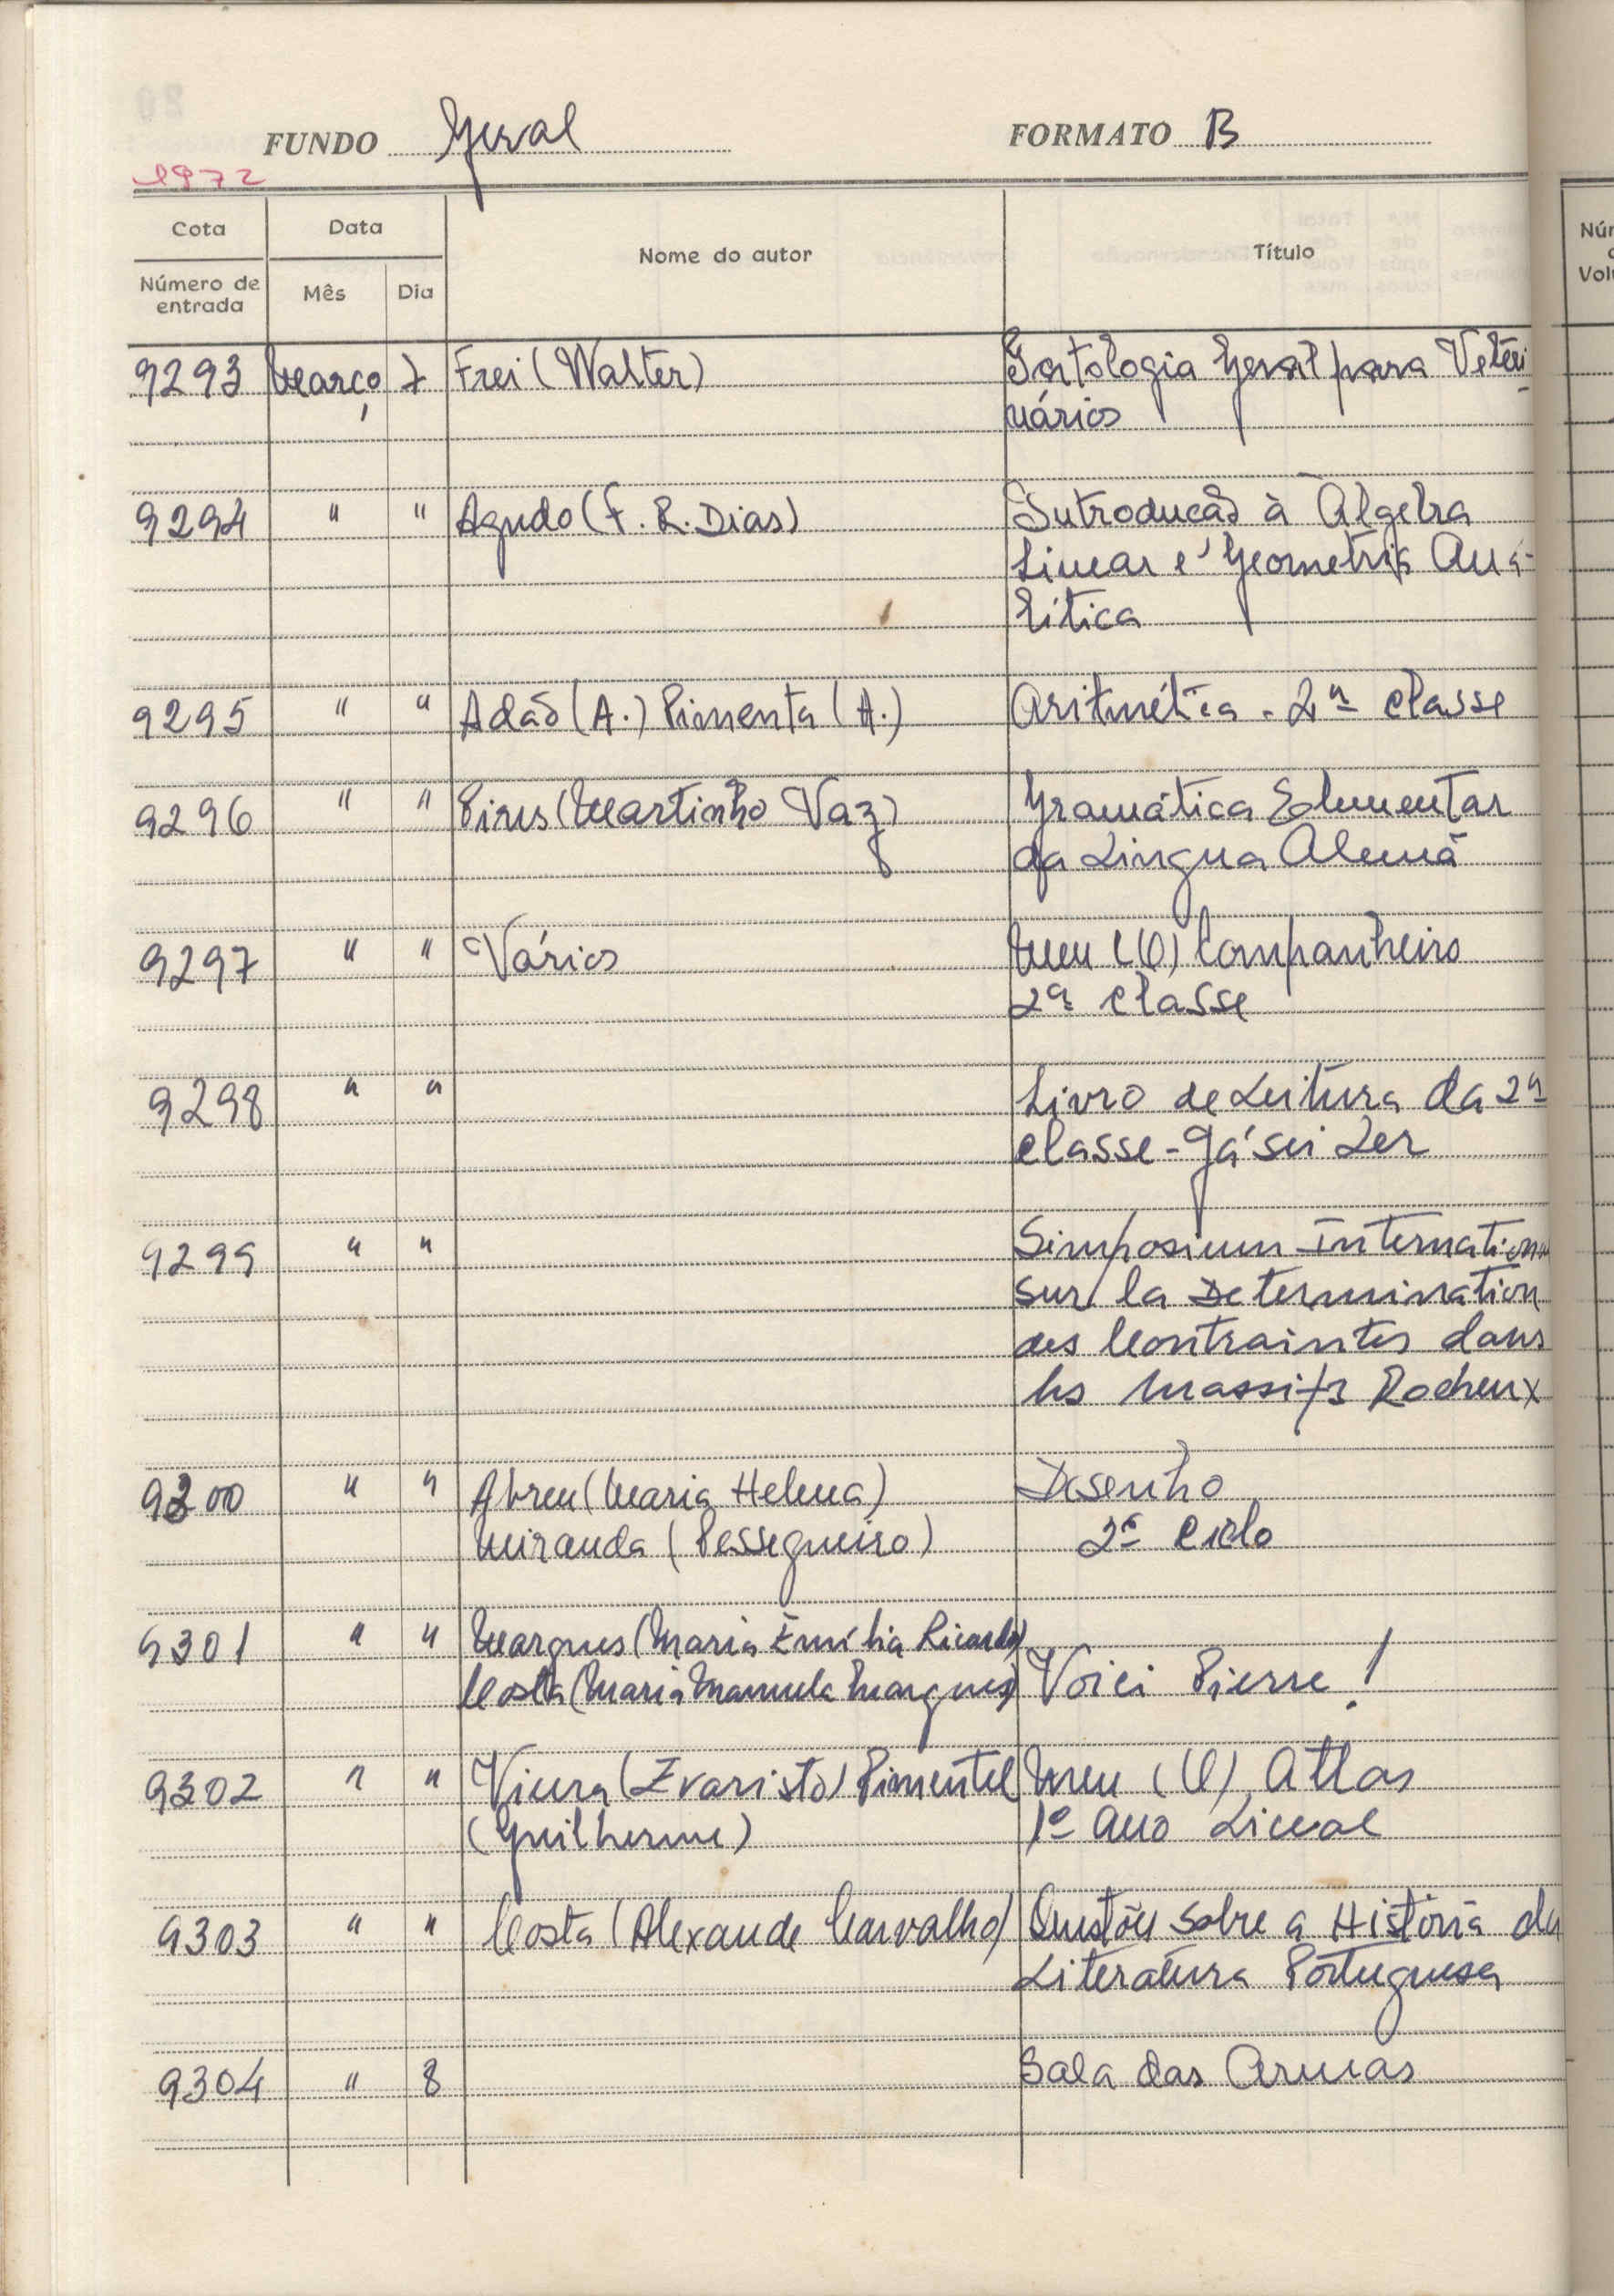 FUNDO Geral FORMATO B
1972
Cota Data Nome do autor Título
Número de entrada Mês Dia
Nú
Vol
9293 Março 7 Frei (Walter) Geral para Veteri
nários
9294 " " Agudo (F. R. Dias) Introducão à Algebra
Linear e Geometria Aná-
litica
9295 " " Adão (A.) Pimenta (A.) Aritmética - 2ª classe
9296 " " Pires (Martinho Vaz) Gramática Elementar
da Lingua Alemã
9297 " " Vários Meu (O) Companheiro
2ª classe
9298 " " Livro de Leitura da 2ª
classe - Já sei Ler
9299 " " Simposium Internation
sur la Determination
des Contraintes dans
les Massifs Rocheux
9300 " " Abreu (Maria Helena) Desenho
Miranda (Pessegueiro) 2º Ciclo
9301 " " Marques (Maria Emília Ricardo)
Costa (Maria Manuela Marques) Voici Pierre!
9302 " " Vieira (Evaristo) Pimentel Meu (O) Atlas
(Guilherme) 1º Ano Liceal
9303 " " Costa (Alexande Carvalho) Questões sobre a História da
Literatura Portuguesa
9304 " 8 Sala das Armas